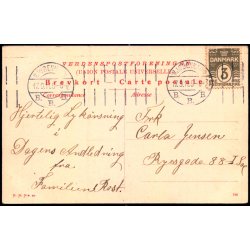 VERDENSPOSTFORENINGEN
(UNION POSTALE UNIVERSELLE)
Brevkort — Carte postale
Adresse
DANMARK
3
B. B.
B.
Hjertelig Lykønskning
i
Dagens Anledning
fra
Familien Rost.
Frk
Carla Jensen
Ryesgade 88